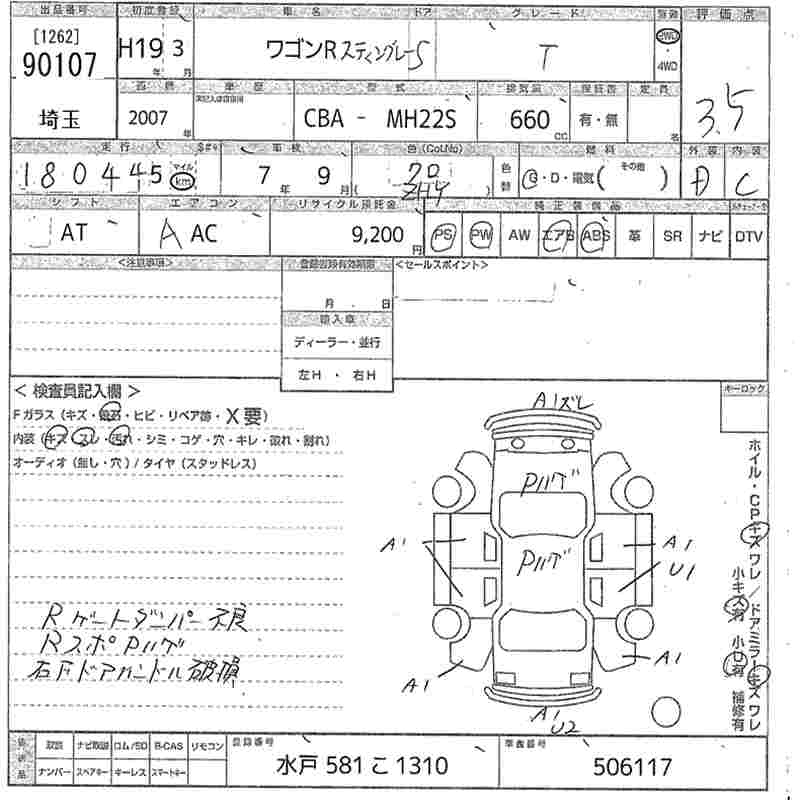 出品番号 初度登録 車名 ドア グレード 駆動 評価点
[1262]
90107 H19 3 ワゴンR スティングレーS T 2WD 3.5
年 月 4WD
埼玉 西暦 車歴 型式 排気量 保証書 定員
2007 CBA - MH22S 660 有・無
年 CC 名
走行 車検 色(ColNo) 燃料 外装 内装
180445 マイル km 7 年 9 月 色替 G・D・電気( その他 ) D C
シフト エアコン リサイクル預託金 純正装備品
AT A AC 9,200 円 PS PW AW エアB ABS 革 SR ナビ DTV
<注意事項> 登録書類有効期限 <セールスポイント>
月 日
輸入車
ディーラー・並行
左H ・ 右H
キーロック
< 検査員記入欄 >
Fガラス(キズ・飛石・ヒビ・リペア跡・X要)
内装(キズ・スレ・汚れ・シミ・コゲ・穴・キレ・破れ・割れ)
オーディオ(無し・穴)/タイヤ(スタッドレス)
A1ズレ
Pハゲ
Pハゲ
A1 A1
U1
Rゲートダンパー不良
RスポPハゲ
右FドアハンドL破損
A1 A1
A1
U2
ホイル・CPキズワレ/ドアミラーキズワレ
小キズ有 小凹有 補修有
付属品 取説 ナビ取説 ロム/SD B-CAS リモコン 登録番号 車台番号
ナンバー スペアキー キーレス スマートキー 水戸 581 こ 1310 506117